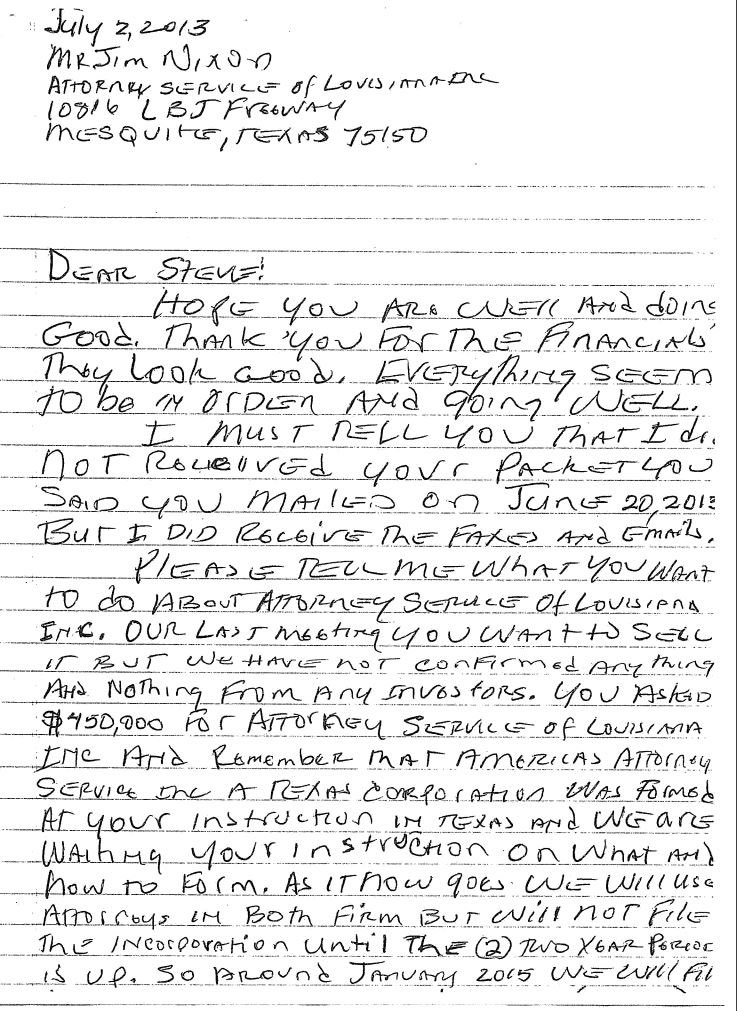 July 2, 2013
Mr Jim Nixon
Attorney Service of Louisiana Inc
10816 LBJ Freeway
Mesquite, Texas 75150
Dear Steve!
Hope you are well and doing
Good. Thank you for the Financials
They look good. Everything seem
to be in order and going well.
I must tell you that I di
not Receuved your packet you
said you mailed on June 20, 2013
But I did Receive the Faxes and Emails.
Please tell me what you want
to do about Attorney Service of Louisiana
Inc. Our last meeting you want to sell
it but we have not confirmed anything
and nothing from any investors. You asked
$450,000 for Attorney Service of Louisiana
Inc and remember that Americas Attorney
Service Inc a Texas Corporation was formed
at your instruction in Texas and we are
waiting your instruction on what and
how to form. As it now goes we will use
Attorneys in both firm but will not file
the incorporation until the (2) two year period
is up. So around January 2015 we will fil